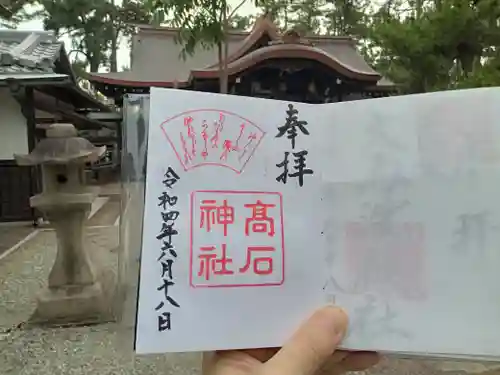 奉拝
高石
神社
令和四年六月十八日